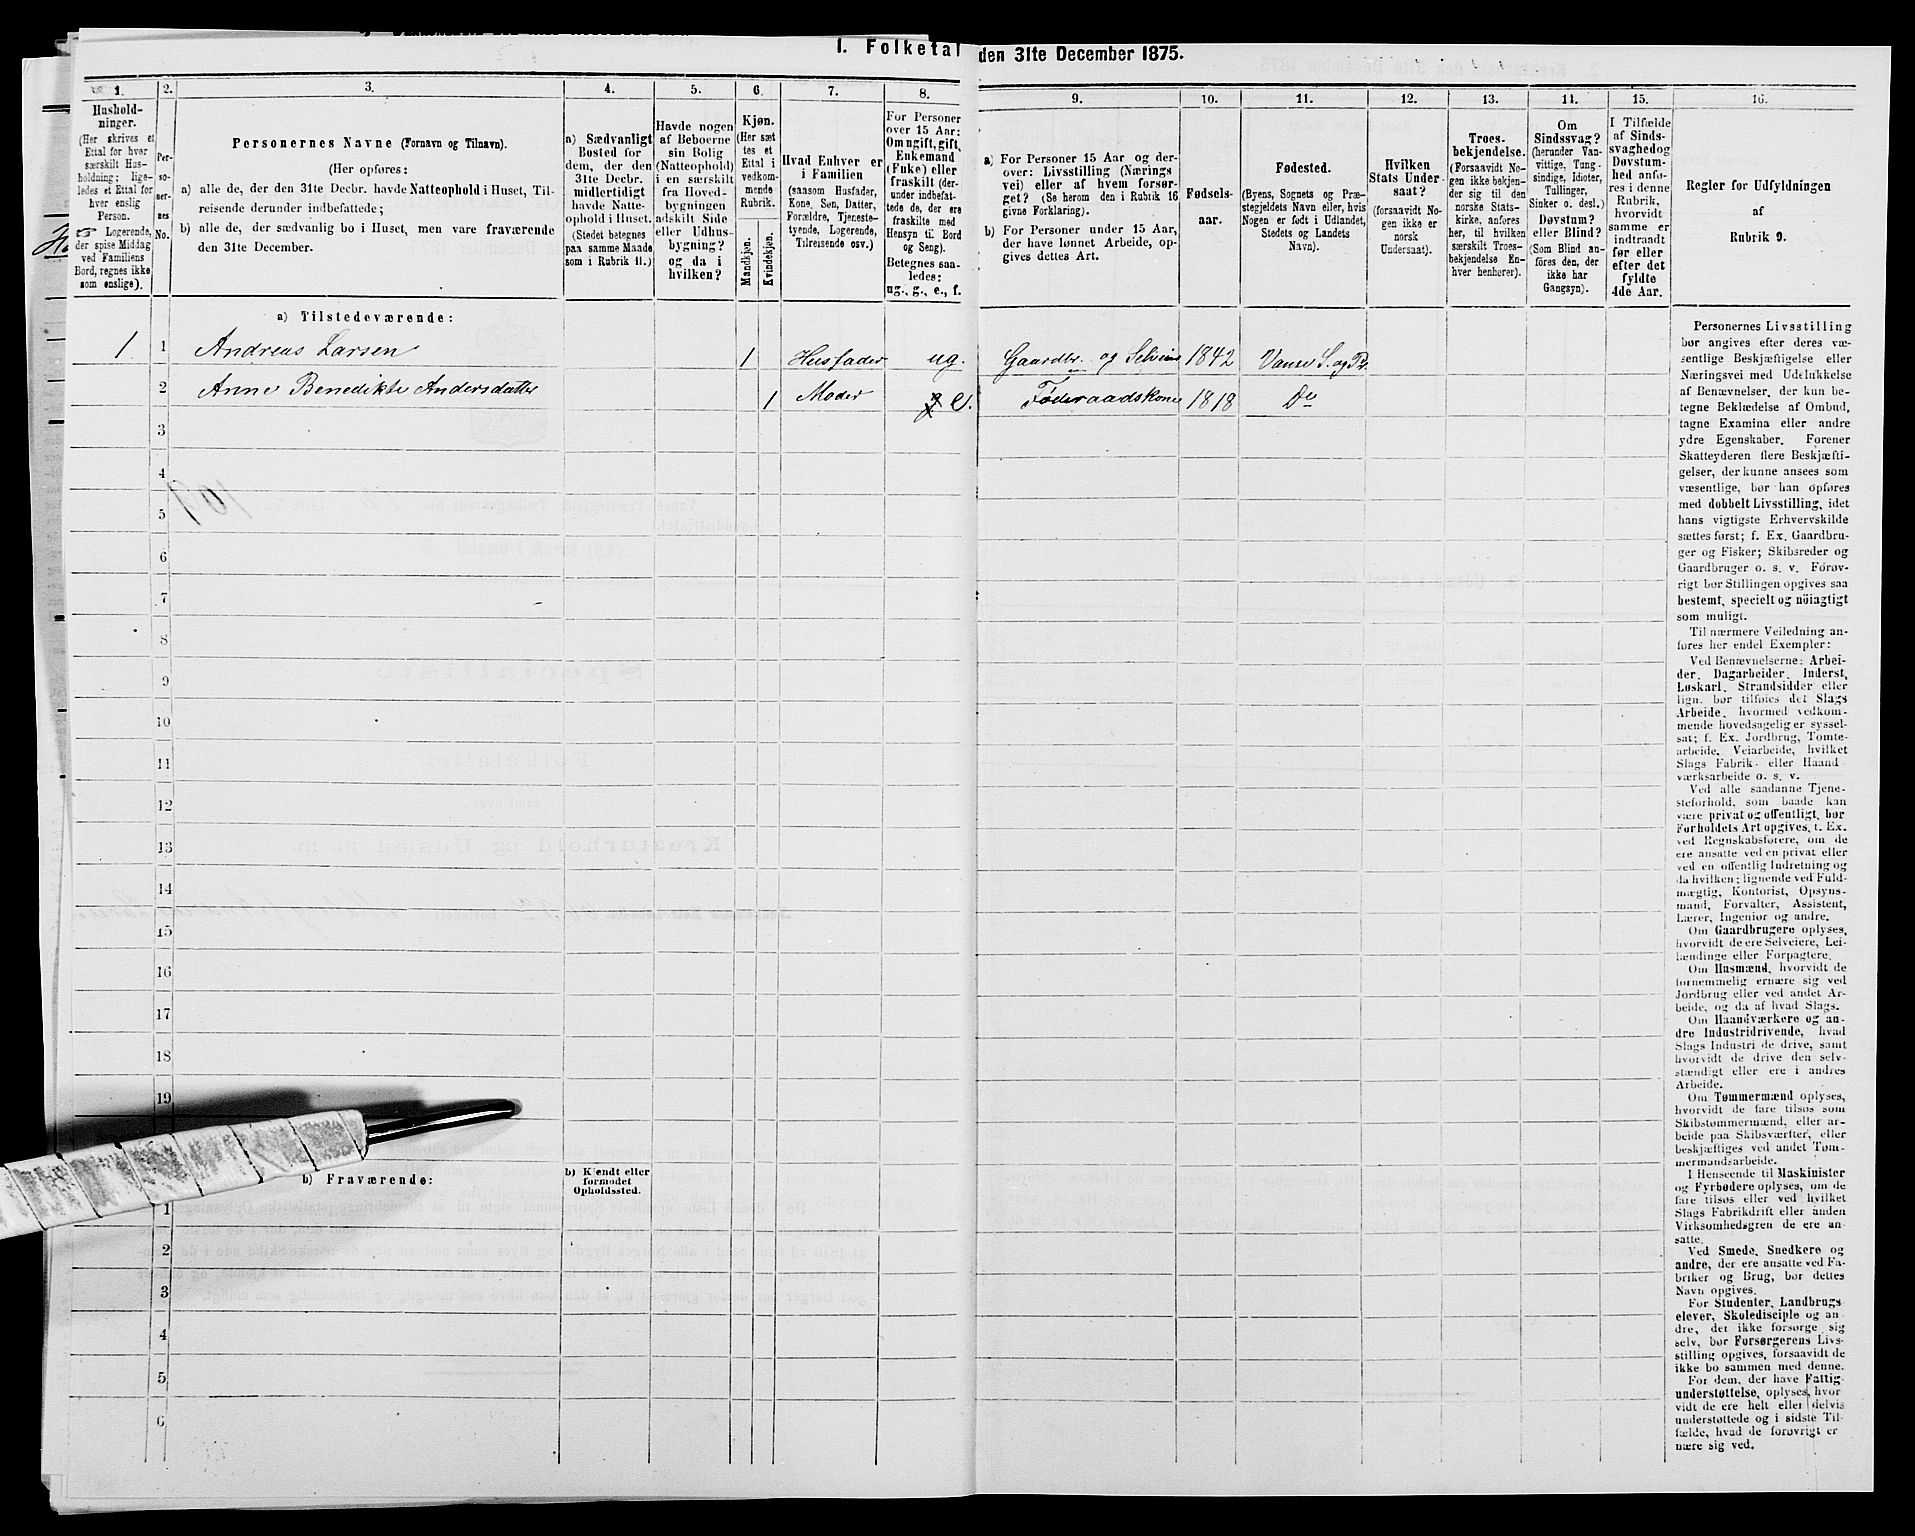 1. Folketal den 31te December 1875.
1. 2. 3. 4. 5. 6. 7. 8. 9. 10. 11. 12. 13. 14. 15. 16.
Hushold-
ninger.
(Her skrives et
Ettal for hver
særskilt Hus-
holdning; lige-
ledes et Ettal for
hver enslig
Person.
Logerende,
der spise Middag
ved Familiens
Bord, regnes ikke
som enslige).
Per-
so-
ner-
nes
No.
Personernes Navne (Fornavn og Tilnavn).
(Her opføres:
a) alle de, der den 31te Decbr. havde Natteophold i Huset, Til-
reisende derunder indbefattede;
b) alle de, der sædvanlig bo i Huset, men vare fraværende
den 31te December.
a) Sædvanligt
Bosted for
dem, der den
31te Decbr.
midlertidigt
havde Natte-
ophold i Huset.
(Stedet betegnes
paa samme Maade
som i Rubrik 11.)
Havde nogen
af Beboerne
sin Bolig
(Natteophold)
i en særskilt
fra Hoved-
bygningen
adskilt Side
eller Udhus-
bygning?
og da i
hvilken?
Kjøn.
(Her sæt
tes et
Ettal i
vedkom-
mende
Rubrik.
Mandkjøn.
Kvindekjøn.
Hvad Enhver er
i Familien
(saasom Husfader,
Kone, Søn, Datter,
Forældre, Tjeneste-
tyende, Logerende,
Tilreisende osv.)
For Personer
over 15 Aar:
Om ugift, gift,
Enkemand
(Enke) eller
fraskilt (der-
under indbefat-
tede de, der ere
fraskilte med
Hensyn til Bord
og Seng).
Betegnes saa-
ledes:
ug., g., e., f.
a) For Personer 15 Aar og der-
over: Livsstilling (Nærings
vei) eller af hvem forsør-
get? (Se herom den i Rubrik 16
givne Forklaring).
b) For Personer under 15 Aar,
der have lønnet Arbeide, op-
gives dettes Art.
Fødsels-
aar.
Fødested.
(Byens, Sognets og Præ-
stegjeldets Navn eller, hvis
Nogen er født i Udlandet,
Stedets og Landets
Navn).
Hvilken
Stats Under
saat?
(forsaavidt No-
gen ikke er
norsk
Undersaat).
Troes-
bekjendelse.
(Forsaavidt No-
gen ikke bekjen-
der sig til den
norske Stats-
kirke, anføres
her, til hvilken
særskilt Troes-
bekjendelse En-
hver henhører).
Om
Sindssvag?
(herunder Van-
vittige, Tung-
sindige, Idioter,
Tullinger,
Sinker o. desl.)
Døvstum?
eller Blind?
(Som Blind an-
føres den, der
ikke har
Gangsyn).
I Tilfælde
af Sinds-
svaghed og
Døvstum-
hed anfø-
res i denne
Rubrik,
hvorvidt
samme er
indtraadt
før eller
efter det
fyldte
4de Aar.
Regler for Udfyldningen
af
Rubrik 9.
a) Tilstedeværende:
1 1 Andreas Larsen 1 Husfader ug. Gaardbr. og Selveier 1842 Vanse S. og Pr.
2 Anne Benedikte Andersdatter 1 Moder e. Føderaadskone 1818 Do
3
4
5
6
7
8
9
10
11
12
13
14
15
16
17
18
19
b) Fraværende:
b) Kjendt eller
formodet
Opholdssted.
1
2
3
4
5
6
Personernes Livsstilling
bør angives efter deres væ-
sentlige Beskjæftigelse eller
Næringsvei med Udelukkelse
af Benævnelser, der kun be-
tegne Beklædelse af Ombud,
tagne Examina eller andre
ydre Egenskaber. Forener
Skatteyderen flere Beskjæfti-
gelser, der kunne ansees som
væsentlige, bør han opføres
med dobbelt Livsstilling, idet
hans vigtigste Erhvervskilde
sættes først; f. Ex. Gaardbru-
ger og Fisker; Skibsreder og
Gaardbruger o. s. v. Forøv-
rigt bør Stillingen opgives saa
bestemt, specielt og nøiagtigt
som muligt.
Til nærmere Veiledning an-
føres her endel Exempler:
Ved Benævnelserne: Arbei-
der, Dagarbeider, Inderst,
Løskarl, Strandsidder eller
lign. bør tilføies det Slags
Arbeide, hvormed vedkom-
mende hovedsagelig er syssel-
sat; f. Ex. Jordbrug, Tomte-
arbeide, Veiarbeide, hvilket
Slags Fabrik- eller Haand
værksarbeide o. s. v.
Ved alle saadanne Tjene-
steforhold, som baade kan
være privat og offentligt, bør
Forholdets Art opgives, f. Ex.
ved Regnskabsførere, om de
ere ansatte ved en privat eller
ved en offentlig Indretning og
da hvilken; lignende ved Fuld-
mægtig, Kontorist, Opsyns-
mand, Forvalter, Assistent,
Lærer, Ingeniør og andre.
Om Gaardbrugere oplyses,
hvorvidt de ere Selveiere, Lei-
lændinge eller Forpagtere.
Om Husmænd, hvorvidt de
fornemmelig ernære sig ved
Jordbrug eller ved andet Ar-
beide, og da af hvad Slags.
Om Haandværkere og an-
dre Industridrivende, hvad
Slags Industri de drive, samt
hvorvidt de drive den selv-
stændigt eller ere i andres
Arbeide.
Om Tømmermænd oplyses,
hvorvidt de fare tilsøs som
Skibstømmermænd, eller ar-
beide paa Skibsværfter, eller
beskjæftiges ved andet Tøm-
mermandsarbeide.
I Henseende til Maskinister
og Fyrbødere oplyses, om de
fare tilsøs eller ved hvilket
Slags Fabrikdrift eller anden
Virksomhedsgren de ere an-
satte.
Ved Smede, Snedkere og
andre, der ere ansatte ved Fa-
briker og Brug, bør dettes
Navn opgives.
For Studenter, Landbrugs
elever, Skoledisciple og an-
dre, det ikke forsørge sig
selv, bør Forsørgerens Livs-
stilling opgives, forsaavidt de
ikke bo sammen med denne.
For dem, der have Fattig
understøttelse, oplyses, hvor
vidt de ere helt eller delvis
understøttede og i sidste Til-
fælde, hvad de forøvrigt er
nære sig ved.